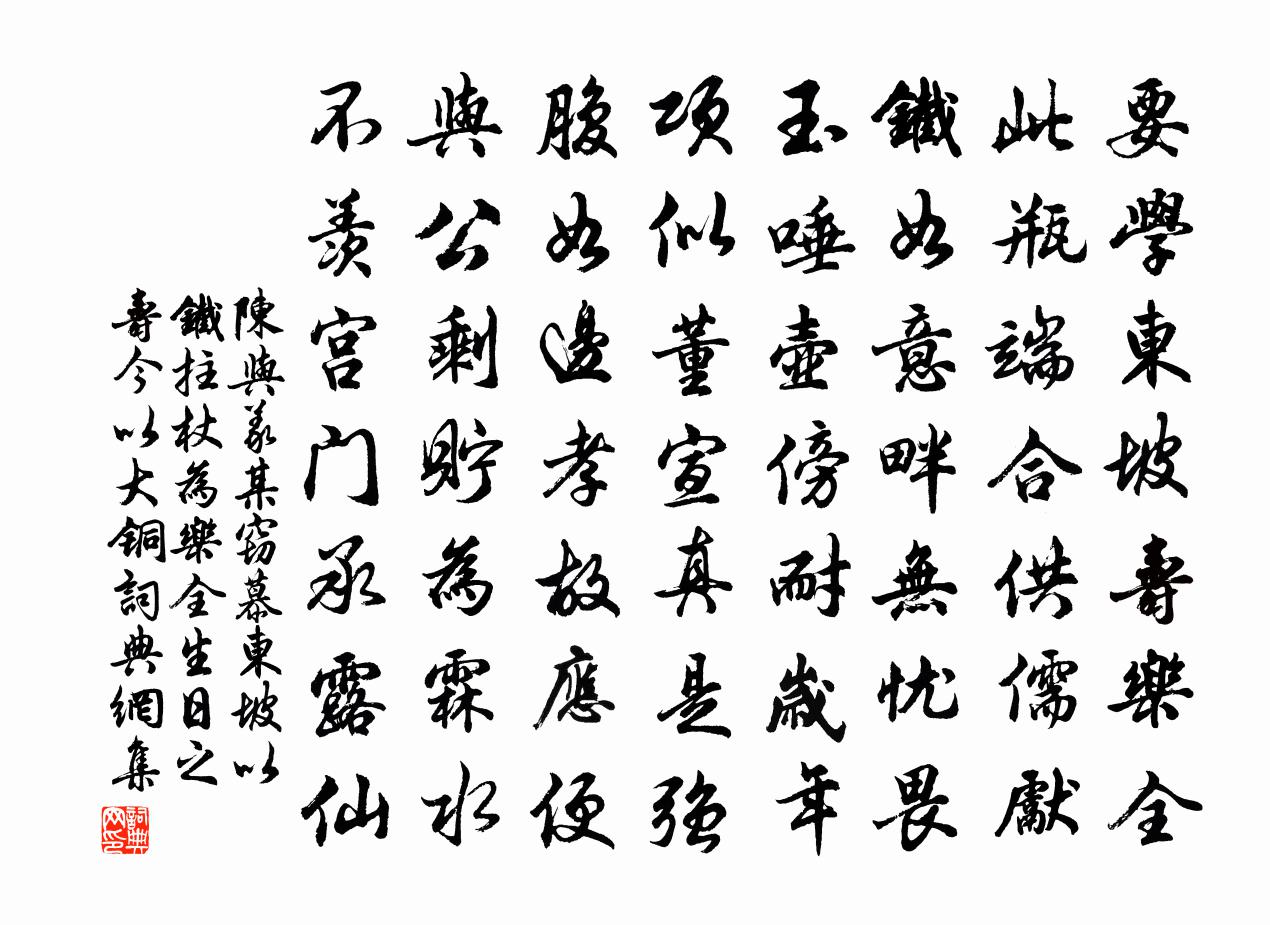 要學東坡壽樂全
此瓶端合供儒獻
鐵如意畔無忧畏
玉唾壺傍耐歲年
項似董宣真是強
腹如邊孝故應便
與公剩貯為霖水
不羨宫门承露仙
陳與義某窃慕東坡以
鐵拄杖為樂全生日之
壽今以大銅詞典網集
詞典网印